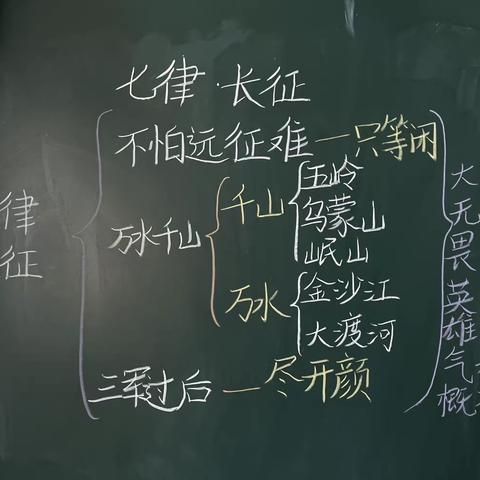 七律·长征
律
征
不怕远征难—只等闲
万水千山
千山
五岭
乌蒙山
岷山
万水
金沙江
大渡河
三军过后—尽开颜
大无畏英雄气概